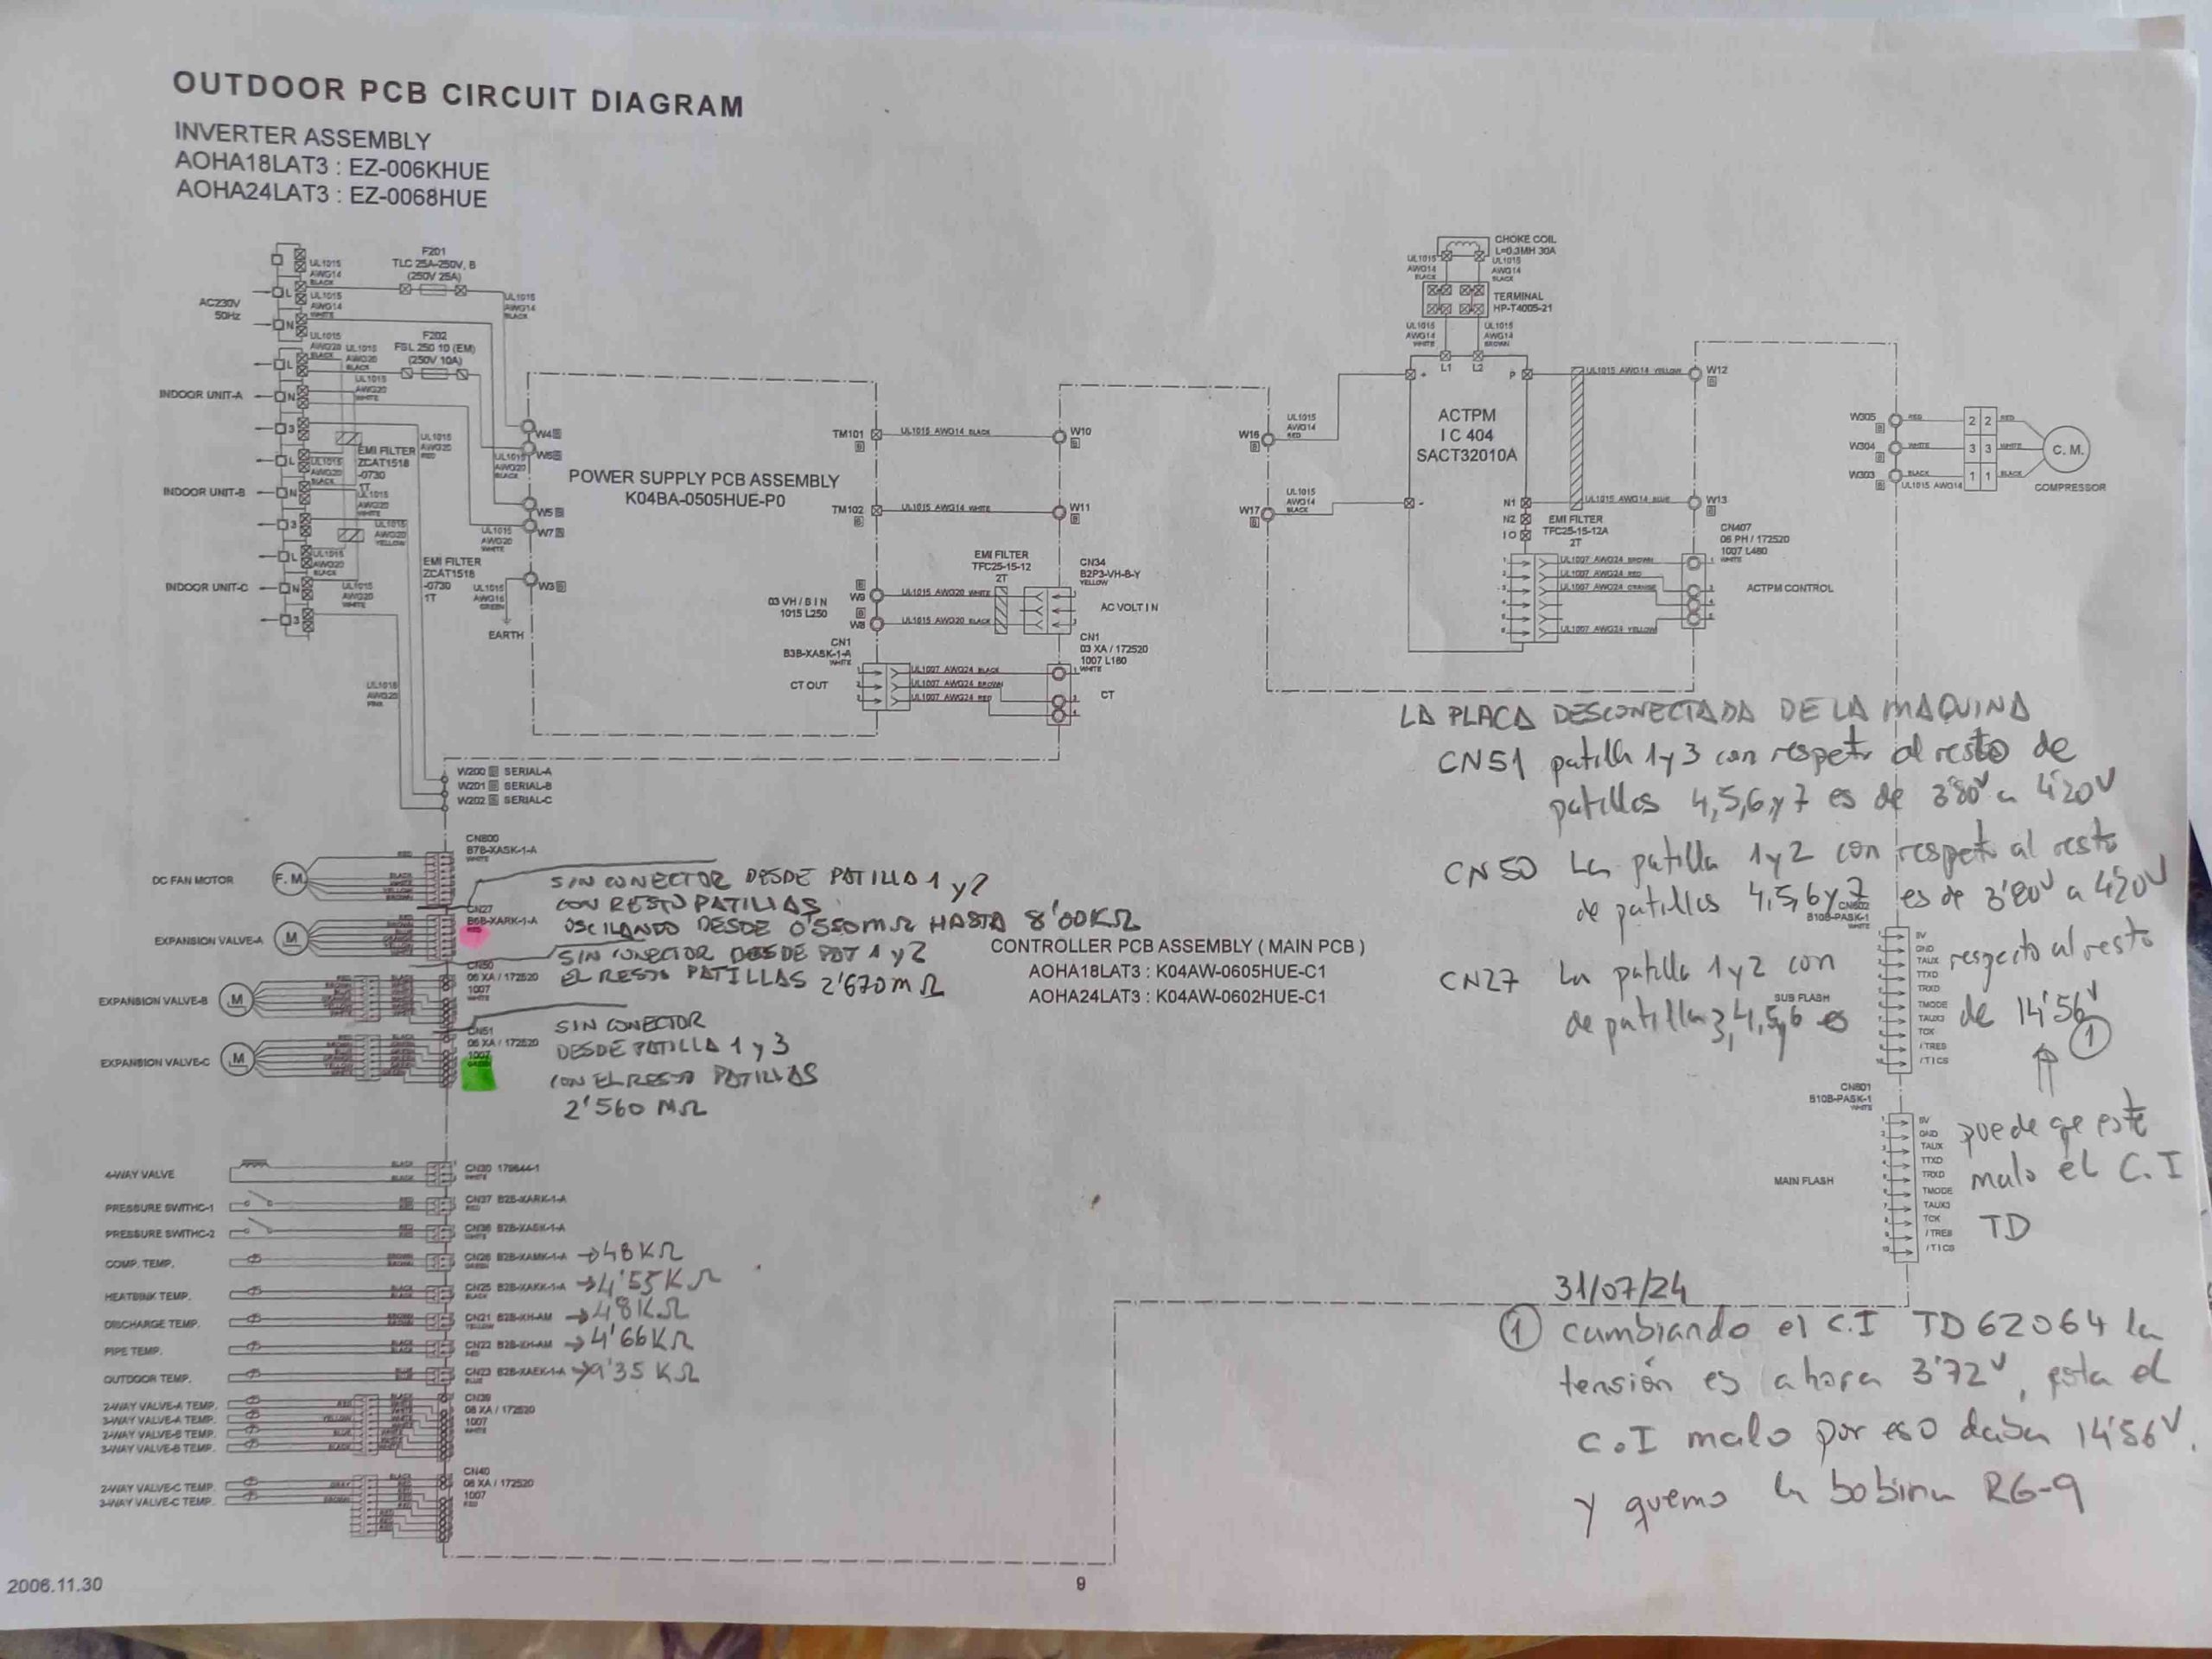 OUTDOOR PCB CIRCUIT DIAGRAM
INVERTER ASSEMBLY
AOHA18LAT3 : EZ-006KHUE
AOHA24LAT3 : EZ-0068HUE
F201
TLC 25A-250V, B
(250V 25A)
AC230V
50Hz
L
N
F202
FSL 250 10 (EM)
(250V 10A)
INDOOR UNIT-A
L
N
3
INDOOR UNIT-B
L
N
3
INDOOR UNIT-C
L
N
3
EMI FILTER
ZCAT1518
-0730
1T
EMI FILTER
ZCAT1518
-0730
1T
UL1015
AWG16
GREEN
EARTH
W4
W5
W7
W3
POWER SUPPLY PCB ASSEMBLY
K04BA-0505HUE-P0
TM101
UL1015 AWG14 BLACK
W10
TM102
UL1015 AWG14 WHITE
W11
03 VH / B I N
1015 L250
W9
W8
UL1015 AWG20 WHITE
UL1015 AWG20 BLACK
EMI FILTER
TFC25-15-12
2T
CN34
B2P3-VH-B-Y
YELLOW
AC VOLT I N
CN1
B3B-XASK-1-A
WHITE
CT OUT
UL1007 AWG24 BLACK
UL1007 AWG24 BROWN
UL1007 AWG24 RED
CN1
03 XA / 172520
1007 L160
WHITE
CT
CHOKE COIL
L=0.3MH 30A
TERMINAL
HP-T4005-21
UL1015
AWG14
WHITE
UL1015
AWG14
BROWN
L1
L2
P
ACTPM
I C 404
SACT32010A
W16
UL1015
AWG14
RED
W17
UL1015
AWG14
BLACK
UL1015 AWG14 YELLOW
W12
UL1015 AWG14 BLUE
W13
N1
N2
IO
EMI FILTER
TFC25-15-12A
2T
CN407
06 PH / 172520
1007 L480
WHITE
UL1007 AWG24 BROWN
UL1007 AWG24 RED
UL1007 AWG24 ORANGE
UL1007 AWG24 YELLOW
ACTPM CONTROL
W305
RED
2 2
RED
W304
WHITE
3 3
WHITE
W303
BLACK
1 1
BLACK
UL1015 AWG14
C. M.
COMPRESSOR
W200 SERIAL-A
W201 SERIAL-B
W202 SERIAL-C
LA PLACA DESCONECTADA DE LA MAQUINA
CN51 patilla 1 y 3 con respeto al resto de
patillas 4,5,6 y 7 es de 3'80V a 4'20V
CN50 La patilla 1 y 2 con respeto al resto
de patillas 4,5,6 y 7 es de 3'80V a 4'20V
CN27 La patilla 1 y 2 con respecto al resto
de patilla 3,4,5,6 es de 14'56V
①
puede qe este
malo el C.I
TD
DC FAN MOTOR
F. M.
CN800
B7B-XASK-1-A
WHITE
EXPANSION VALVE-A
M
CN27
B6B-XARK-1-A
SIN CONECTOR DESDE PATILLA 1 y 2
CON RESTO PATILLAS
OSCILANDO DESDE 0'550MΩ HASTA 8'00KΩ
EXPANSION VALVE-B
M
CN50
06 XA / 172520
1007
WHITE
SIN CONECTOR DESDE PAT 1 y 2
EL RESTO PATILLAS 2'670MΩ
EXPANSION VALVE-C
M
CN51
06 XA / 172520
1007
SIN CONECTOR
DESDE PATILLA 1 y 3
CON EL RESTO PATILLAS
2'560 MΩ
CONTROLLER PCB ASSEMBLY ( MAIN PCB )
AOHA18LAT3 : K04AW-0605HUE-C1
AOHA24LAT3 : K04AW-0602HUE-C1
B10B-PASK-1
WHITE
5V
GND
TAUX
TTXD
TRXD
TMODE
TAUX3
TCK
/TRES
/TICS
SUB FLASH
CN801
B10B-PASK-1
WHITE
5V
GND
TAUX
TTXD
TRXD
TMODE
TAUX3
TCK
/TRES
/TICS
MAIN FLASH
4-WAY VALVE
BLACK
BLACK
CN30 179844-1
WHITE
PRESSURE SWITHC-1
CN37 B2B-XARK-1-A
RED
PRESSURE SWITHC-2
CN36 B2B-XASK-1-A
WHITE
COMP. TEMP.
CN26 B2B-XAMK-1-A → 48KΩ
GREEN
HEATSINK TEMP.
CN25 B2B-XAKK-1-A → 4'55KΩ
BLACK
DISCHARGE TEMP.
CN21 B2B-XH-AM → 48KΩ
YELLOW
PIPE TEMP.
CN22 B2B-XH-AM → 4'66KΩ
RED
OUTDOOR TEMP.
CN23 B2B-XAEK-1-A → 9'35 KΩ
BLUE
2-WAY VALVE-A TEMP.
3-WAY VALVE-A TEMP.
2-WAY VALVE-B TEMP.
3-WAY VALVE-B TEMP.
CN39
08 XA / 172520
1007
WHITE
2-WAY VALVE-C TEMP.
3-WAY VALVE-C TEMP.
CN40
08 XA / 172520
1007
RED
31/07/24
① cambiando el C.I TD62064 la
tensión es ahora 3'72V, esta el
C.I malo por eso daba 14'56V.
y quemo la bobina RG-9
2006.11.30
9